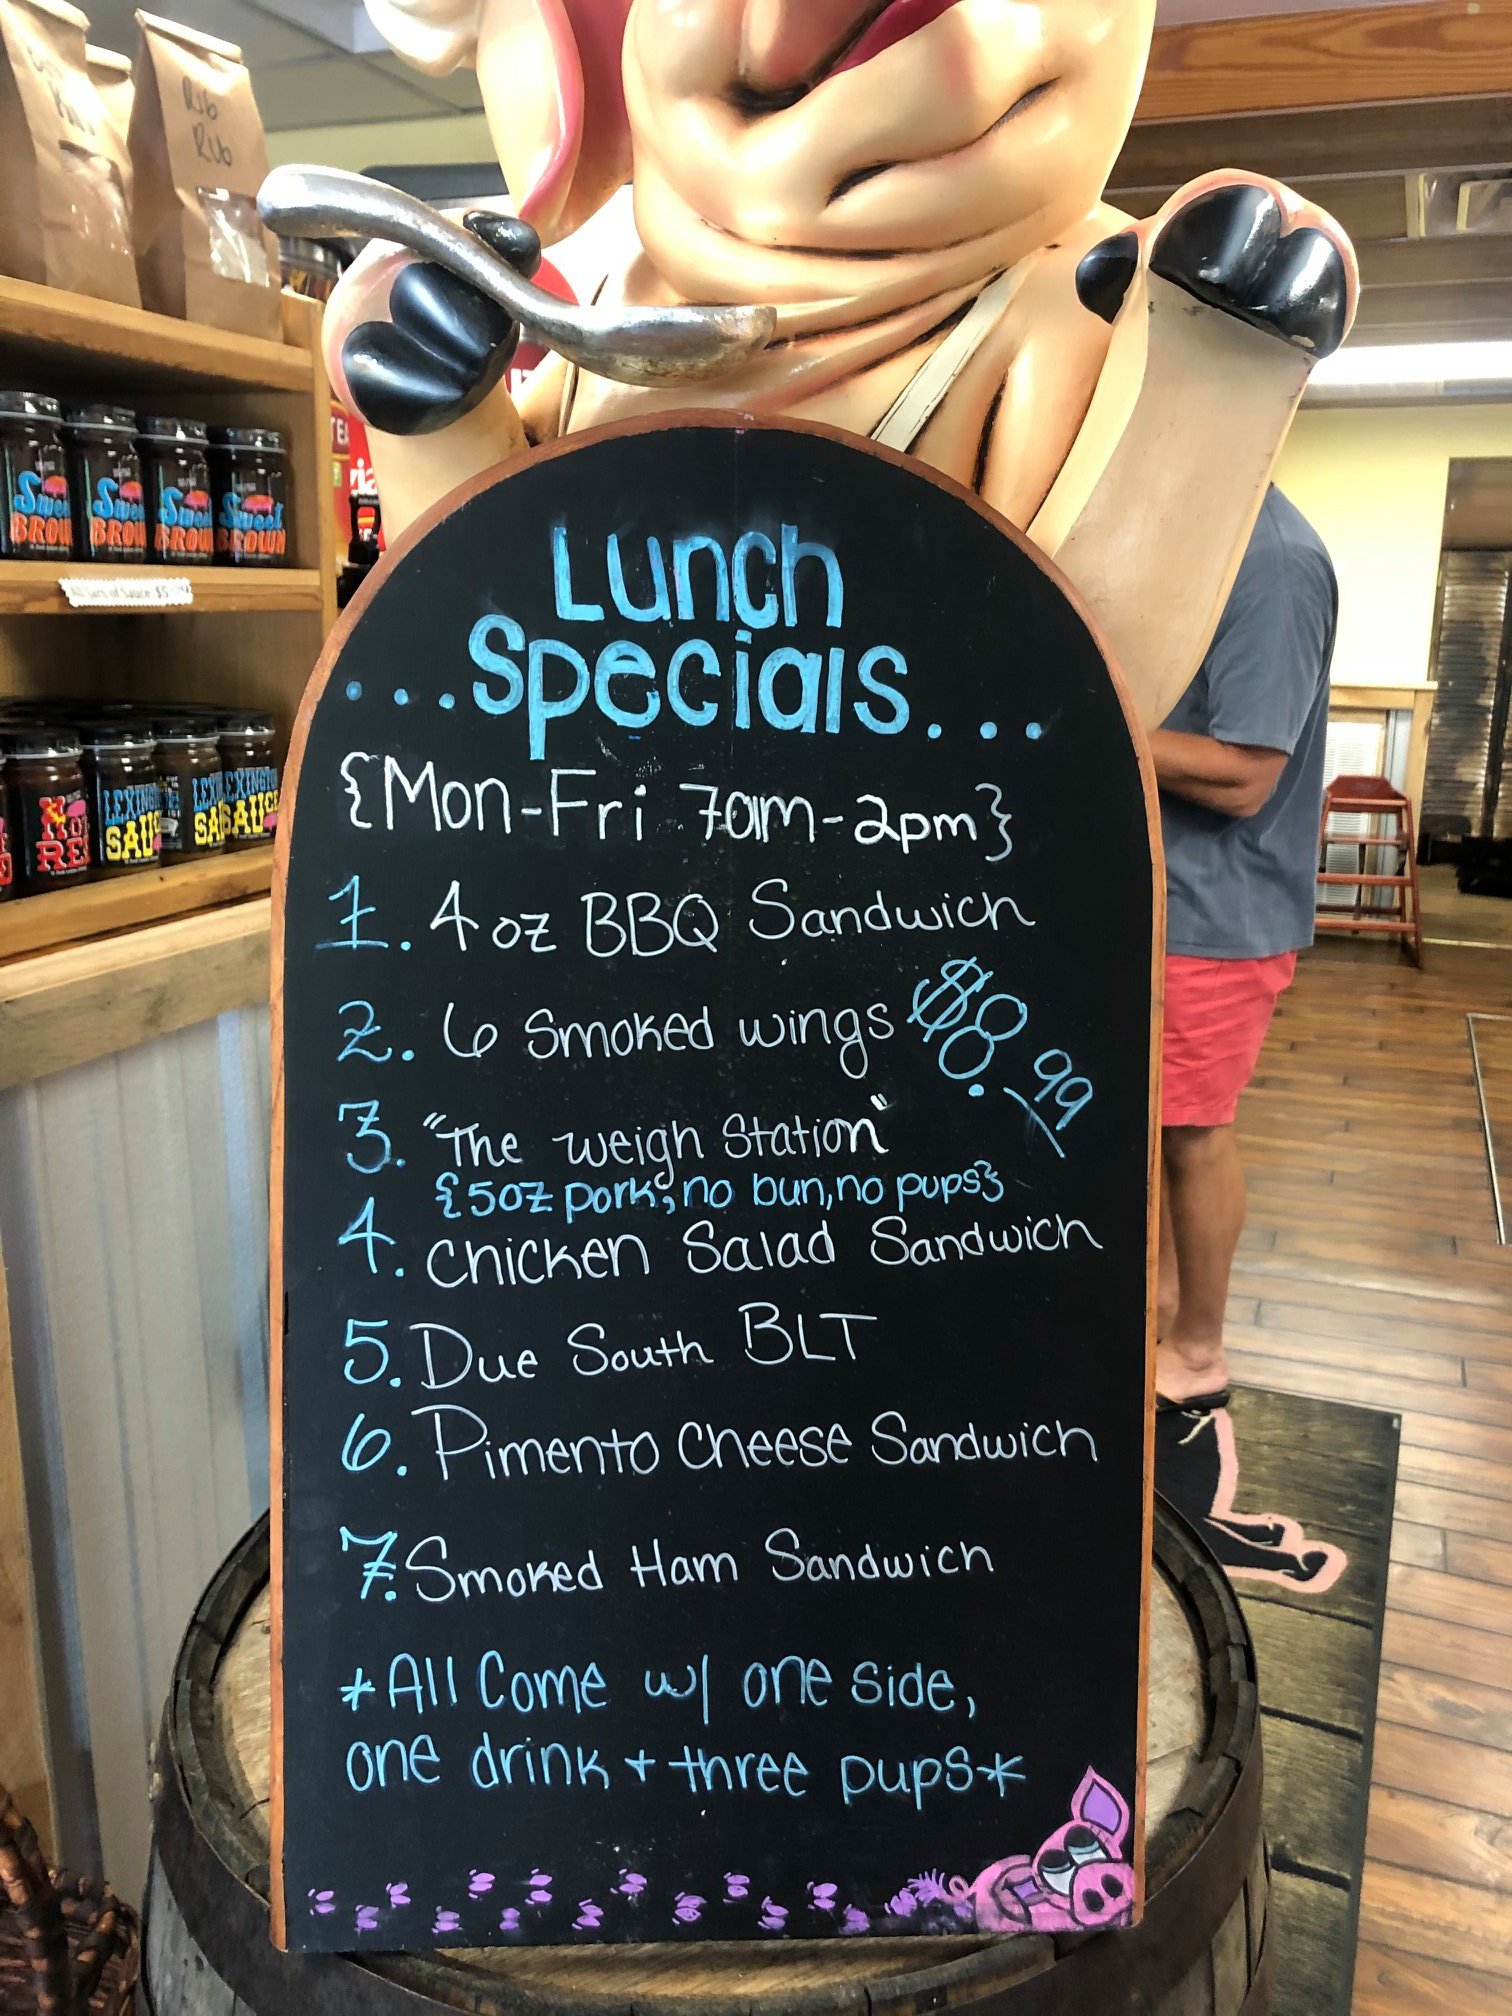 Rib
Rub
Sweet
BROWN
All Jars of Sauce $5
LEXINGTON
SAUCE
Lunch
...Specials...
{Mon-Fri 7am-2pm}
1. 4 oz BBQ Sandwich
2. 6 Smoked wings
$8.99
3. "The weigh Station"
{5oz pork, no bun, no pups}
4. Chicken Salad Sandwich
5. Due South BLT
6. Pimento Cheese Sandwich
7. Smoked Ham Sandwich
*All Come w/ one side,
one drink + three pups*